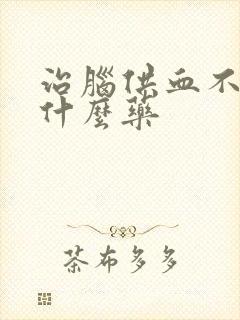 治腦供血不
什麼藥
茶布多多